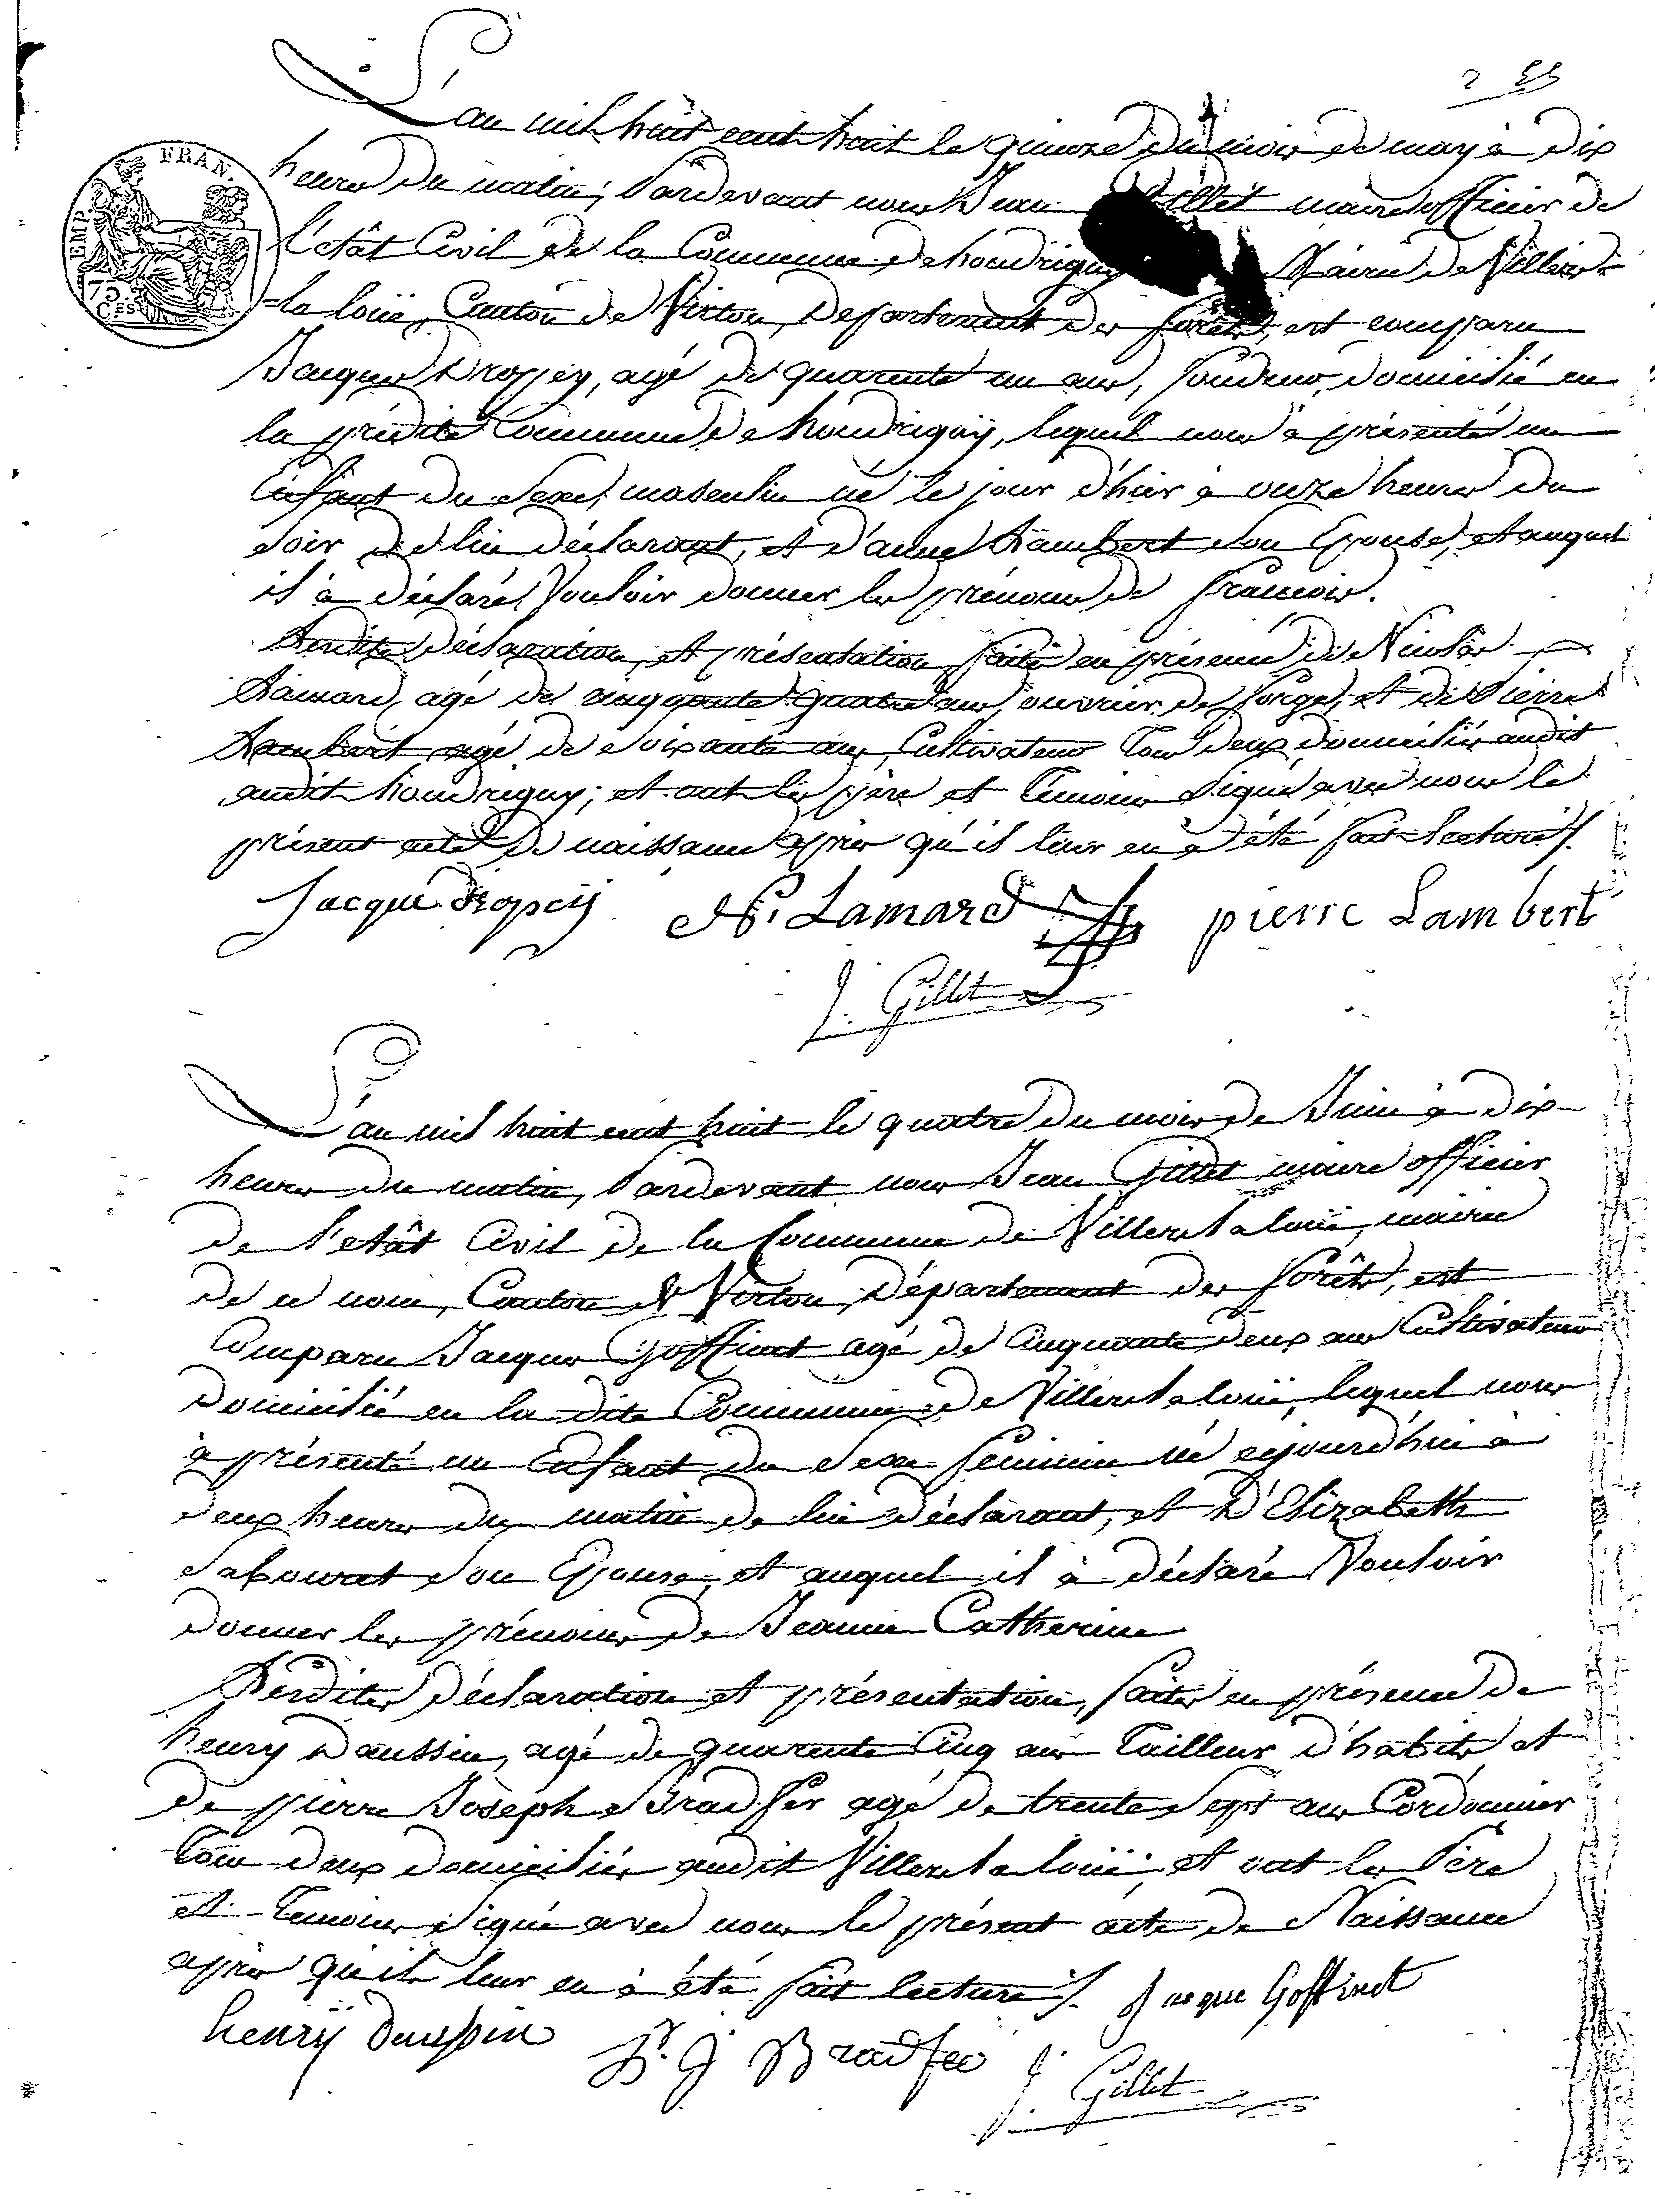 L'an mil huit cent huit le quinze du mois de may à dix
heures du matin; Pardevant nous Jean Gillet maire officier de
l'etât Civil de la Commune de houdrigny Mairie de Villers-
-la loüe, Canton de Virton, Departement des forêts, est comparu
Jacques Dropsy, agé de quarente un ans, domicilié en
la prédite Commune de houdrigny, lequel nous à présenté un
Enfant du Sexe masculin né le jour d'hier à onze heures du
soir de lui déclarant, et d'anne Lambert son Epouse, et auquel
il à déclaré Vouloir donner les prénoms de francois.
Lesdites Déclaration, et présentation faite en présence de Nicolas
Lamard, agé de cinquante quatre ans, ouvrier de forge, et de Pierre
Lambert agé de soixante ans, Cultivateur Tous deux domiciliés audit
audit houdrigny; et ont les père et Temoins Signé avec nous le
présent acte de naissance après qu'il leur en à été fait lecture ./.
Jacque dropsy N. Lamard pierre Lambert
J. Gillet
L'an mil huit cent huit le quatre du mois de Juin à dix
heures du matin, Pardevant nous Jean Gillet maire officier
de l'etât Civil de la Commune de Villers la loüe, mairie
de ce nom, Canton de Virton, Département des forêts, est
Comparu Jacques Goffinet agé de Cinquante deux ans Cultivateur
Domicilié en la dite Commune de Villers la loüe, lequel nous
à présenté un Enfant du Sexe feminin né cejourd'hui à
deux heures du matin de lui déclarant, et D'Elizabeth
son Epouse, et auquel il à déclaré Vouloir
donner les prénoms de Jeanne Catherine
Lesdites Déclaration et présentation, faites en présence de
henry Daussin, agé de quarente Cinq ans Tailleur d'habits et
de pierre Joseph Bradfer agé de trente Sept ans Cordonnier
Tous deux domiciliés audit Villers la loüe, et ont les Père
et Temoins Signé avec nous le présent acte de Naissance
après qu'il leur en à été fait lecture ./. Jacque Goffinet
henrÿ daussin Pr. J Bradfer
J. Gillet
FRAN.
EMP.
75
Ces